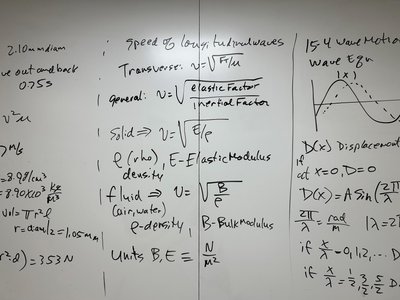 2.10mm diam
ve out and back
0.75s
v²μ
m/s
=8.98/cm³
=8.90x10³ kg/m³
Vol=πr²l
r=diam/2=1.05mm
r²l)=353N
speed of longitudinal waves
Transverse: v=√FT/μ
general: v=√elastic Factor/inertial Factor
Solid ⇒ v=√E/ρ
ρ(rho), E-Elastic Modulus
density
fluid ⇒ v=√B/ρ
(air, water)
ρ-density B-Bulk Modulus
Units B, E ≡ N/m²
15-4 Wave Motion
Wave Eqn
(x)
D(x) Displacement
if
at x=0, D=0
D(x)=A Sin(2π/λ
2π/λ = rad/m |λ=2π
if x/λ=0,1,2,... D
if x/λ=1/2, 3/2, 5/2 D